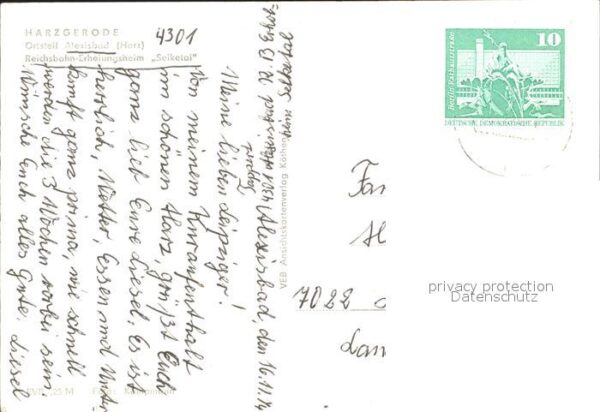 HARZGERODE
Ortsteil Alexisbad (Harz)
Reichsbahn-Erholungsheim „Selketal"
4301
Alexisbad, den 16.11.
Meine lieben Leipziger!
Von meinem Kuraufenthalt
im schönen Harz, grüßt Euch
ganz lieb Eure Liesel. Es ist
herrlich, Wetter, Essen und Unter-
kunft ganz prima, wie schnell
werden die 3 Wochen vorbei sein.
Wünsche Euch alles Gute. Liesel
VEB Ansichtskartenverlag Köthen
10
Berlin, Rathausstraße
DEUTSCHE DEMOKRATISCHE REPUBLIK
Fam
7022
privacy protection
Datenschutz